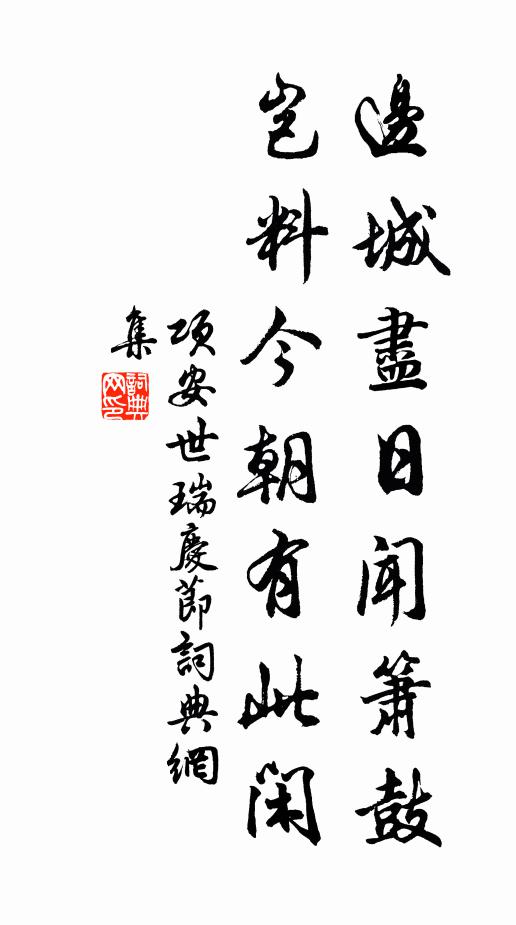 邊城盡日聞簫鼓
豈料今朝有此閑
項安世瑞慶節詞典網
集
詞典
网印